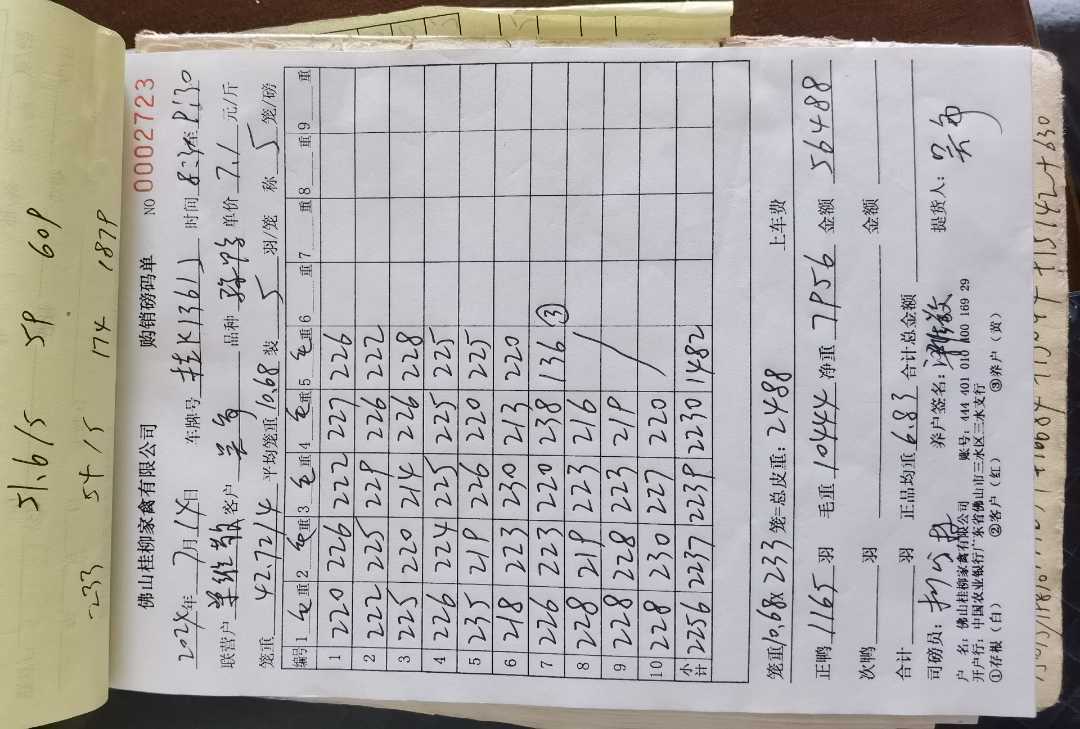 51.6/5 59 609
233 54/5 174 1879
佛山桂柳家禽有限公司 购销磅码单 NO 0002723
2024年7月14日 车牌号 时间
联营户 客户 品种 单价 7.1 元/斤
笼重 42.72/4 平均笼重10.68 装 5 羽/笼 称 5 笼/磅
编号 1 重 2 重 3 重 4 重 5 重 6 重 7 重 8 重 9 重
1 220 226 222 227 226
2 222 225 229 226 222
3 225 220 214 226 228
4 226 224 225 225 225
5 235 219 226 220 225
6 218 223 230 213 220
7 226 223 220 238 136 ③
8 228 219 223 216
9 228 228 223 219
10 228 230 227 220
小计 2256 2237 2239 2230 1482
笼重10.68x233笼=总皮重:2488 上车费
正鸭 1165 羽 毛重 10444 净重 7956 金额 56488
次鸭 羽 金额
合计 羽 正品均重 6.83 合计总金额
司磅员: 养户签名: 提货人:
户 名:佛山桂柳家禽有限公司 账号:444 401 010 400 169 29
开户行:中国农业银行广东省佛山市三水区三水支行
①存根(白) ②客户(红) ③养户(黄)